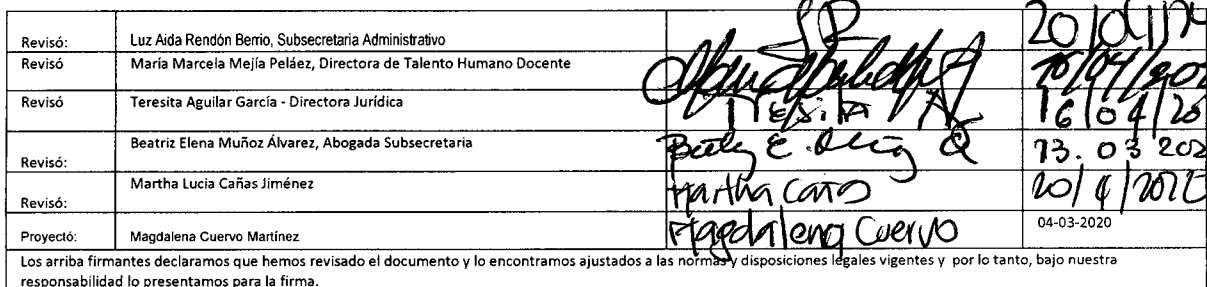 Revisó: Luz Aida Rendón Berrio, Subsecretaria Administrativo
Revisó María Marcela Mejía Peláez, Directora de Talento Humano Docente
Revisó Teresita Aguilar García - Directora Jurídica 16/04/20
Revisó: Beatriz Elena Muñoz Álvarez, Abogada Subsecretaria 13.03 202
Revisó: Martha Lucia Cañas Jiménez Martha Cañas 20/4/2020
Proyectó: Magdalena Cuervo Martínez Magdalena Cuervo 04-03-2020
Los arriba firmantes declaramos que hemos revisado el documento y lo encontramos ajustados a las normas y disposiciones legales vigentes y por lo tanto, bajo nuestra
responsabilidad lo presentamos para la firma.